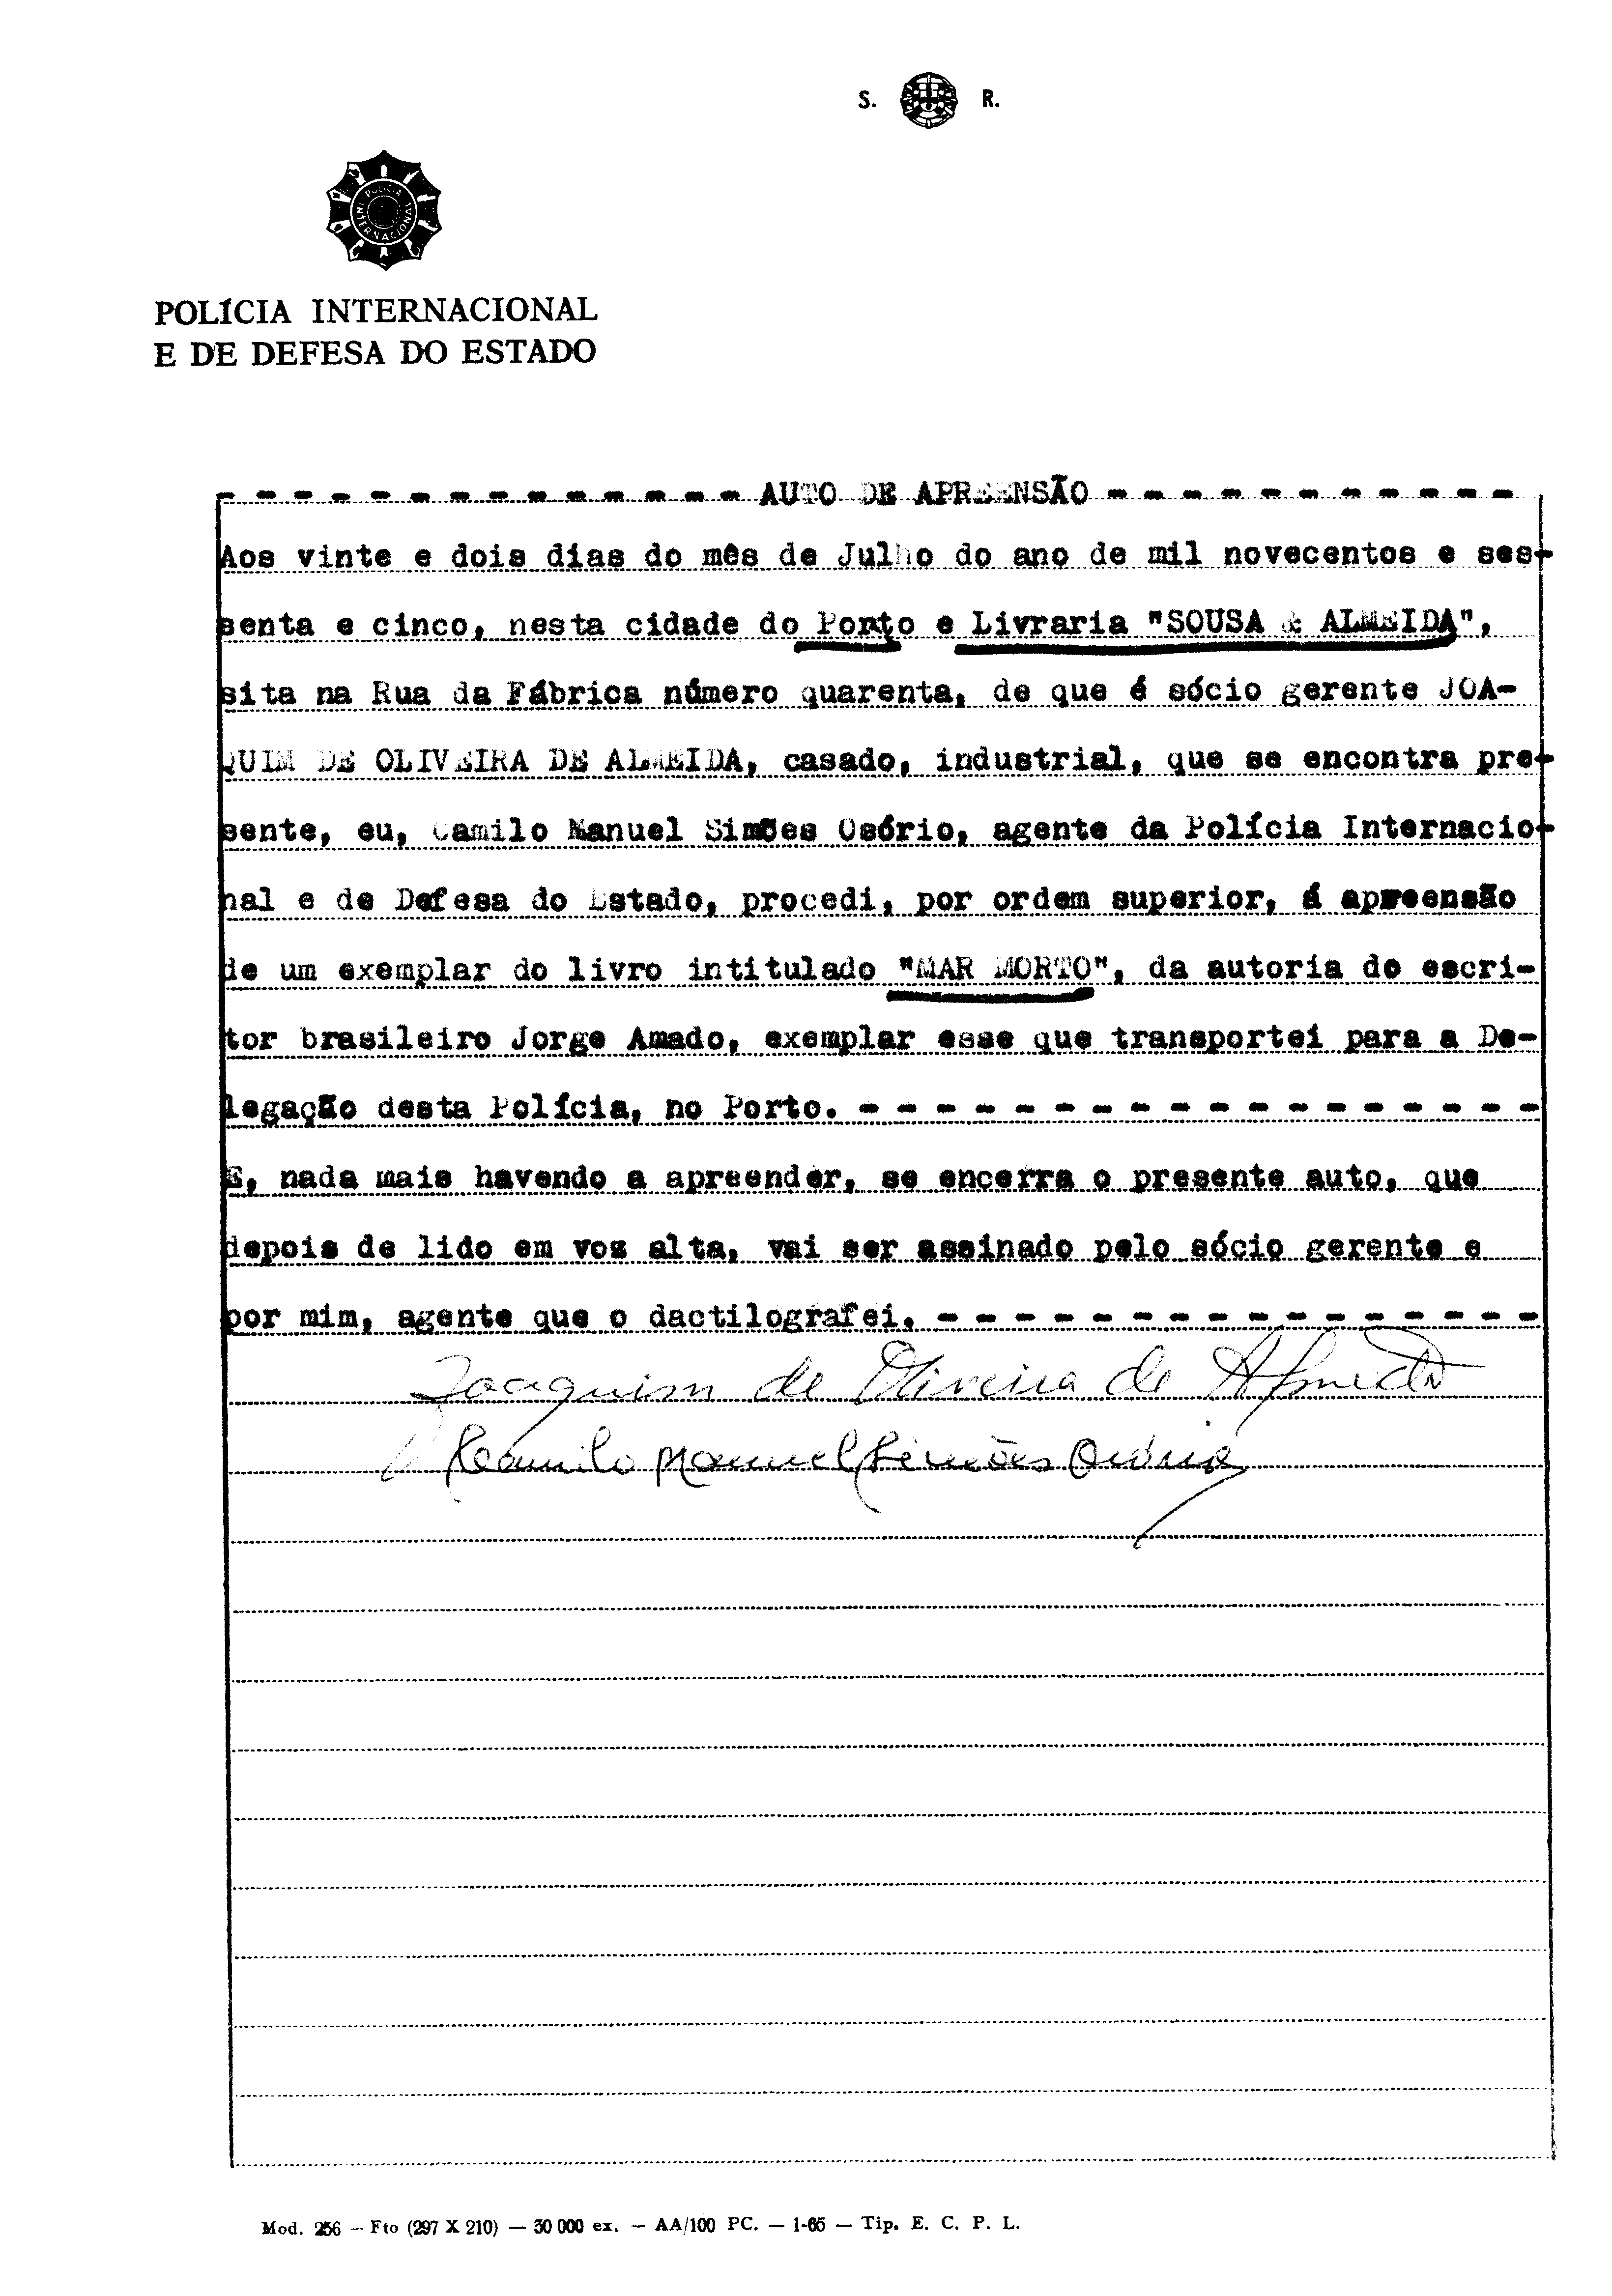 S. R.
POLÍCIA INTERNACIONAL
POLÍCIA INTERNACIONAL
E DE DEFESA DO ESTADO
- - - - - - - - - - - - - - AUTO DE APREENSÃO - - - - - - - - - - -
Aos vinte e dois dias do mês de Julho do ano de mil novecentos e ses-
senta e cinco, nesta cidade do Porto e Livraria "SOUSA & ALMEIDA",
sita na Rua da Fábrica número quarenta, de que é sócio gerente JOA-
QUIM DE OLIVEIRA DE ALMEIDA, casado, industrial, que se encontra pre-
sente, eu, Camilo Manuel Simões Osório, agente da Polícia Internacio-
nal e de Defesa do Estado, procedi, por ordem superior, á apreensão
de um exemplar do livro intitulado "MAR MORTO", da autoria do escri-
tor brasileiro Jorge Amado, exemplar esse que transportei para a De-
legação desta Polícia, no Porto. - - - - - - - - - - - - - - - - - -
E, nada mais havendo a apreender, se encerra o presente auto, que
depois de lido em voz alta, vai ser assinado pelo sócio gerente e
por mim, agente que o dactilografei. - - - - - - - - - - - - - - - -
Joaquim de Oliveira de Almeida
Camilo Manuel Simões Osório
Mod. 256 — Fto (297 X 210) — 30 000 ex. — AA/100 PC. — 1-65 — Tip. E. C. P. L.